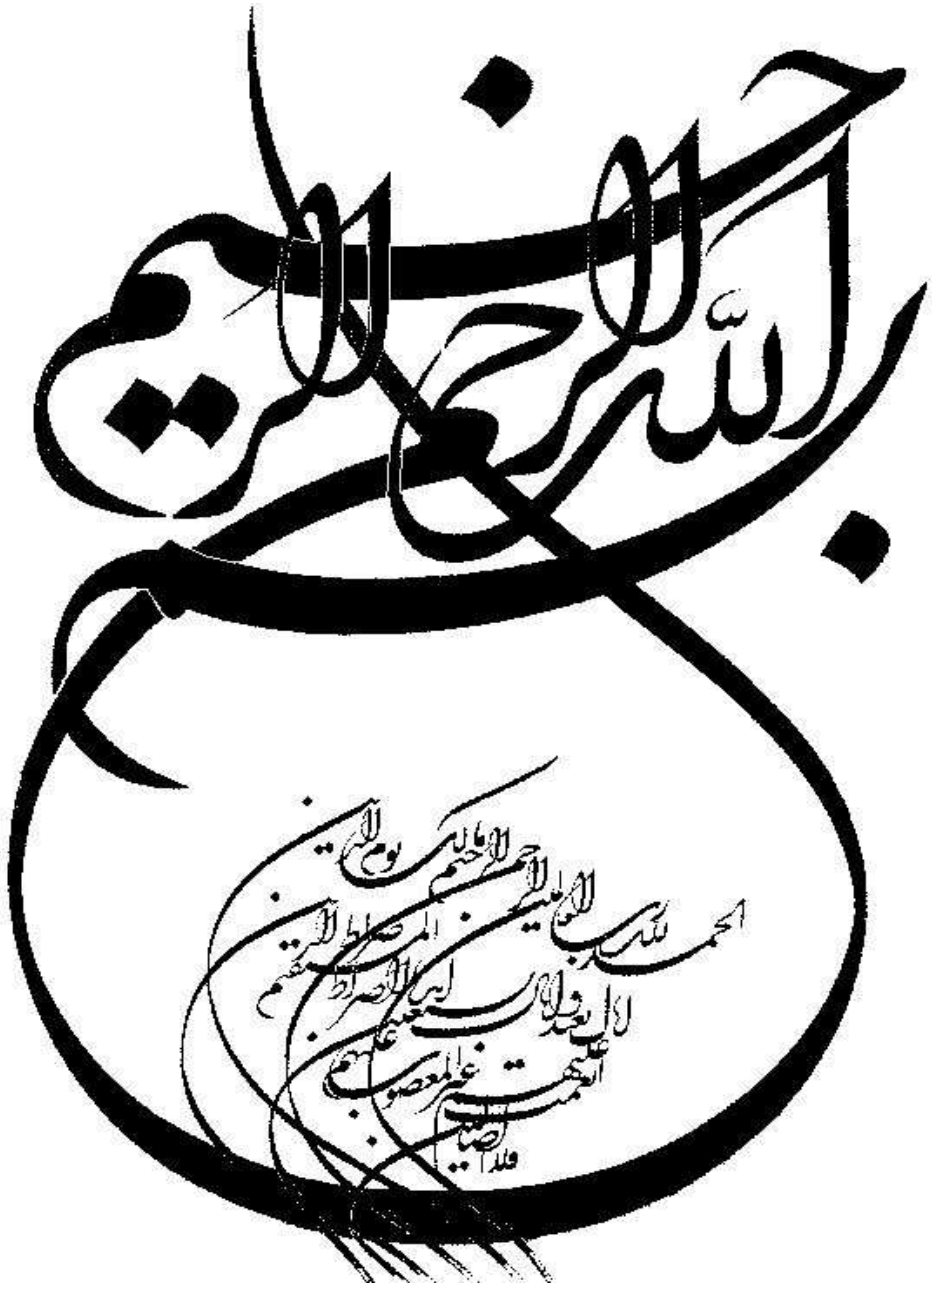 بسم الله الرحمن الرحيم
الحمد لله رب العالمين الرحمن
الرحيم مالك يوم الدين
اياك نعبد واياك نستعين
اهدنا الصراط المستقيم صراط الذين
انعمت عليهم غير المغضوب عليهم
ولا الضالين